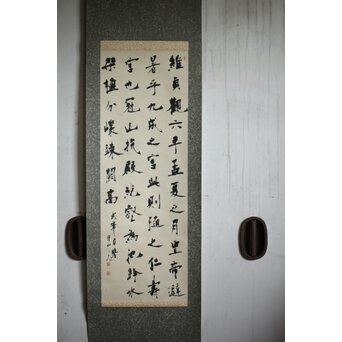 維貞觀六年孟夏之月皇帝避
暑乎九成之宮此則隨之仁壽
宮也冠山抗殿絶壑為池跨水
架楹分巖竦闕高